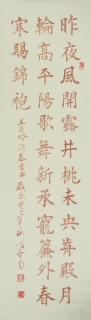 昨夜風開露井桃未央歬殿月
輪高平陽歌舞新承寵簾外春
寒賜錦袍
王昌齡春宮曲